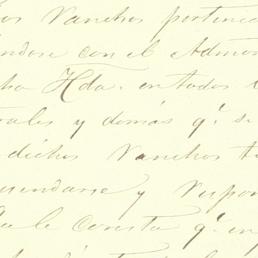 os Ranchos pertenec
éndose con el Admon
cha Hda. en todos l
rales y demás q.e se
dichos Ranchos t
uendarse y respon
le consta q.e en